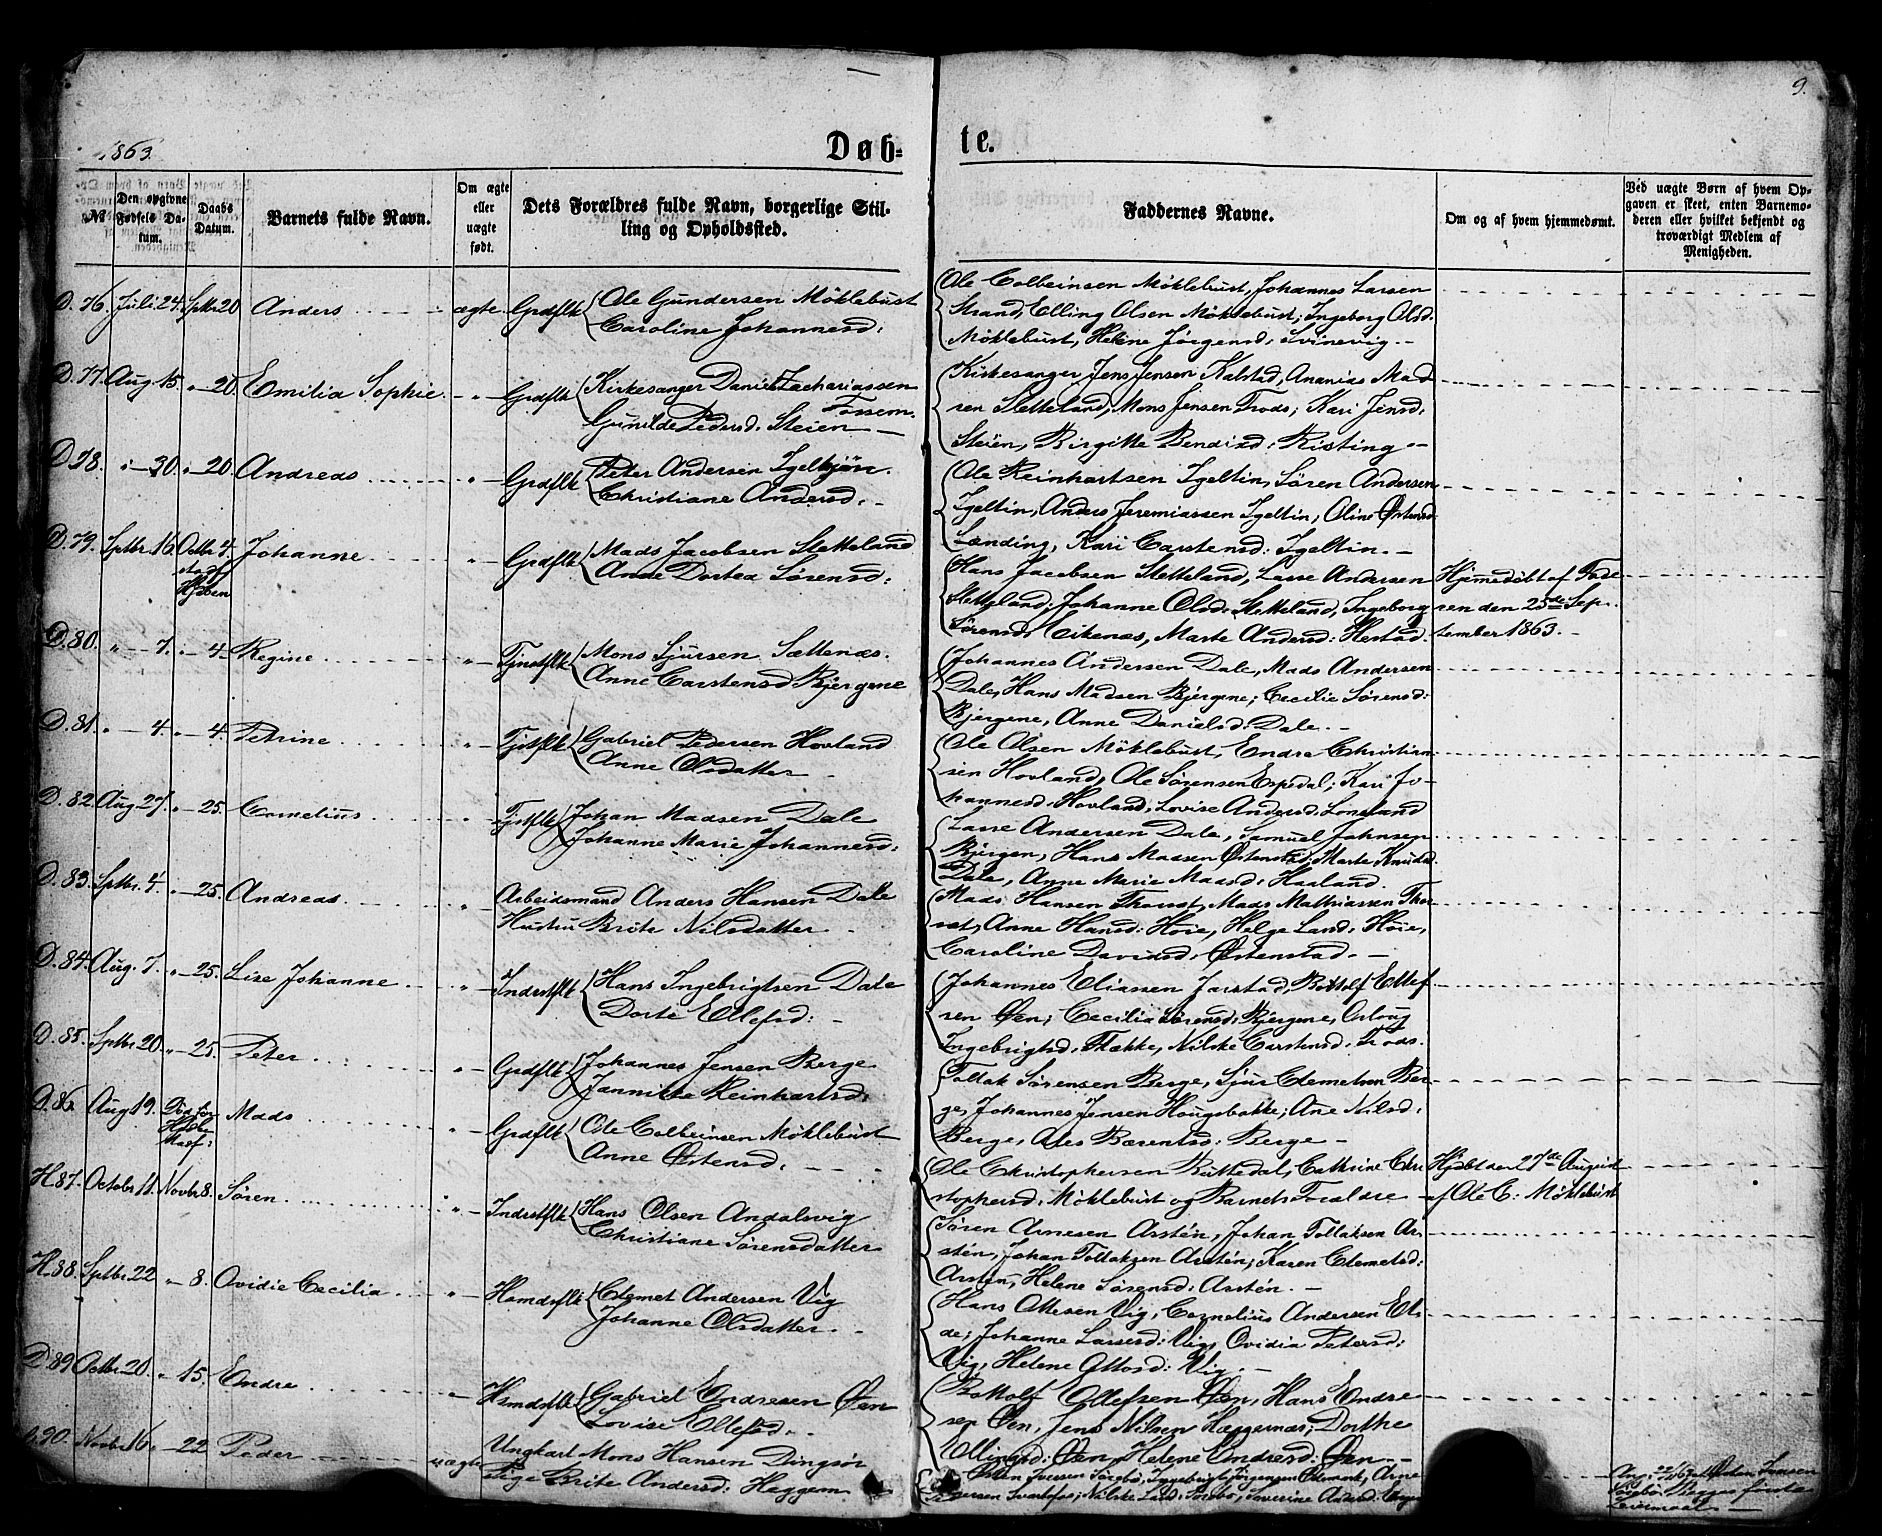 9.
1863.
Døb- te.
№
Den opgivne Fødsels Datum.
Daabs Datum.
Barnets fulde Navn.
Om ægte eller uægte født.
Dets Forældres fulde Navn, borgerlige Stilling og Opholdssted.
Faddernes Navne.
Om og af hvem hjemmedøbt.
Ved uægte Børn af hvem Opgaven er skeet, enten Barnemoderen eller hvilket bekjendt og troværdigt Medlem af Menigheden.
D. 76. Juli 24. Sptbr 20 Anders ægte Grdflk Ole Gundersen Møklebust
Caroline Johannesd:
Ole Colbeinsen Møklebust, Johannes Larsen
Strand, Elling Olsen Møklebust; Ingeborg Olsd.
Møklebust, Helene Jørgensd: Svinevig.
D. 77. Aug. 15. " 20. Emilia Sophie " Grdflk Kirkesanger Daniel Zachariassen
Fossem.
Gunilde Pedersd. Steien
Kirkesanger Jens Jensen Kalstad, Ananias Mad
sen Sletteland, Mons Jensen Trods; Kari Jensd:
Steien, Birgitte Bendixd: Risting
D. 78. " 30. " 20. Andreas " Grdflk Peter Andersen Igeltjøn
Christiane Andersd:
Ole Reinhartsen Igeltin, Søren Andersen
Igeltin, Anders Jeremiassen Igeltin, Oline Østensd
Lænding, Kari Carstensd: Igeltin.
D. 79. Sptbr. 16. Octbr 4. Johanne " Grdflk Mads Jacobsen Sletteland
Anne Dortea Sørensd:
Hans Jacobsen Sletteland, Lasse Andersen
Sletteland, Johanne Olsd: Sletteland, Ingeborg
Sørensd: Eikenæs, Marte Andersd: Hestad
Hjemmedøbt af Fade
ren den 25de Sep-
tember 1863.
D. 80. " 7. " 4. Regine " Tjnstflk Mons Sjursen Sættenæs.
Anne Carstensd Bjergene
Johannes Andersen Dale, Mads Andersen
Dale, Hans Madsen Bjergene; Cecilie Sørensd:
Bjergene, Anne Danielsd: Dale.
D. 81. " 4. " 4. Petrine " Tjstflk Gabriel Pedersen Hovland
Anne Olsdatter
Ole Olsen Møklebust, Endre Christian
sen Hovland, Ole Sørensen Espedal; Kari Jo-
hannesd: Hovland, Lovise Andersd:
D. 82. Aug. 27. " 25. Cornelius " Tjstflk Johan Madsen Dale
Johanne Marie Johannesd:
Lasse Andersen Dale, Samuel Johnsen
Bjergen, Hans Madsen Østenstad, Marte Knudsd.
Dale, Anne Marie Madsd: Haaland.
D. 83. Sptbr. 4. " 25. Andreas " Arbeidsmand Anders Hansen Dale
Hustru Brite Nilsdatter
Mads Hansen Mads Mathiassen
Anne Hansd: Høie, Helge Larsd: Høie,
Caroline Davidsd: Østenstad.
D. 84. Aug. 7. " 25. Lise Johanne " Indrstflk Hans Ingebrigtsen Dale
Dorte Ellefsd:
Johannes Eliassen Jarstad, Bottolf Ellef
sen Øen; Cecilia Sørensd: Bjergene,
Ingebrigtsd. Flække, Nilske Carstensd: Trods.
D. 85. Sptbr 20. " 25. Peter " Grdflk Johannes Jensen Berge
Jannikke Reinhartsd:
Tollak Sørensen Berge, Sjur Clemetsen Ber
ge, Johannes Jensen Hougsbakke; Ane Nilsd:
Berge, Ales Bærentsd: Berge
D. 86. Aug 19. Mads " Grdflk Ole Colbeinsen Møklebust
Anne Østensd.
Ole Christophersen Cathrine Chri
stophersd: Møklebust og Barnets Forældre
Hjdbt den 27de August
af Ole C. Møklebust
H. 87. Octobr 11. Novbr 8. Søren " Indrstflk Hans Olsen Andalsvig
Christiane Sørensdatter
Søren Arnesen Arstén, Johan Tollaksen Ar
stén, Johan Tollaksen Arstén; Karen Clemetsd:
Arstén, Helene Sørensd: Arstén.
H. 88. Sptbr 22 " 8. Ovidie Cecilia " Hsmdsflk Clemet Andersen Vig
Johanne Olsdatter
Hans Ottesen Vig, Cornelius Andersen
Johanne Lassesd: Vig, Ovidia Petersd:
Vig, Helene Ottosd: Vig.
D. 89. Octbr 20. " 15. Endre " Hsmdsflk Gabriel Endresen Øen
Lovise Ellefsd:
Bottolf Ellefsen Øen, Hans Endre
sen Øen, Jens Nilsen Hæggenæs; Dorthe
Ellingsd: Øen, Helene Endresd: Øen
90. Novbr 16. " 22 Peder uægte Ungkarl Mons Hansen Dingsør
Pige Brite Andersd: Heggem
Østen Iversen Sørebø, Ingebrigt Jørgensen
Nilske Larsd: Severine Andersd:
Østen Iversen
Sørebø. Begges første
Leiermaal.